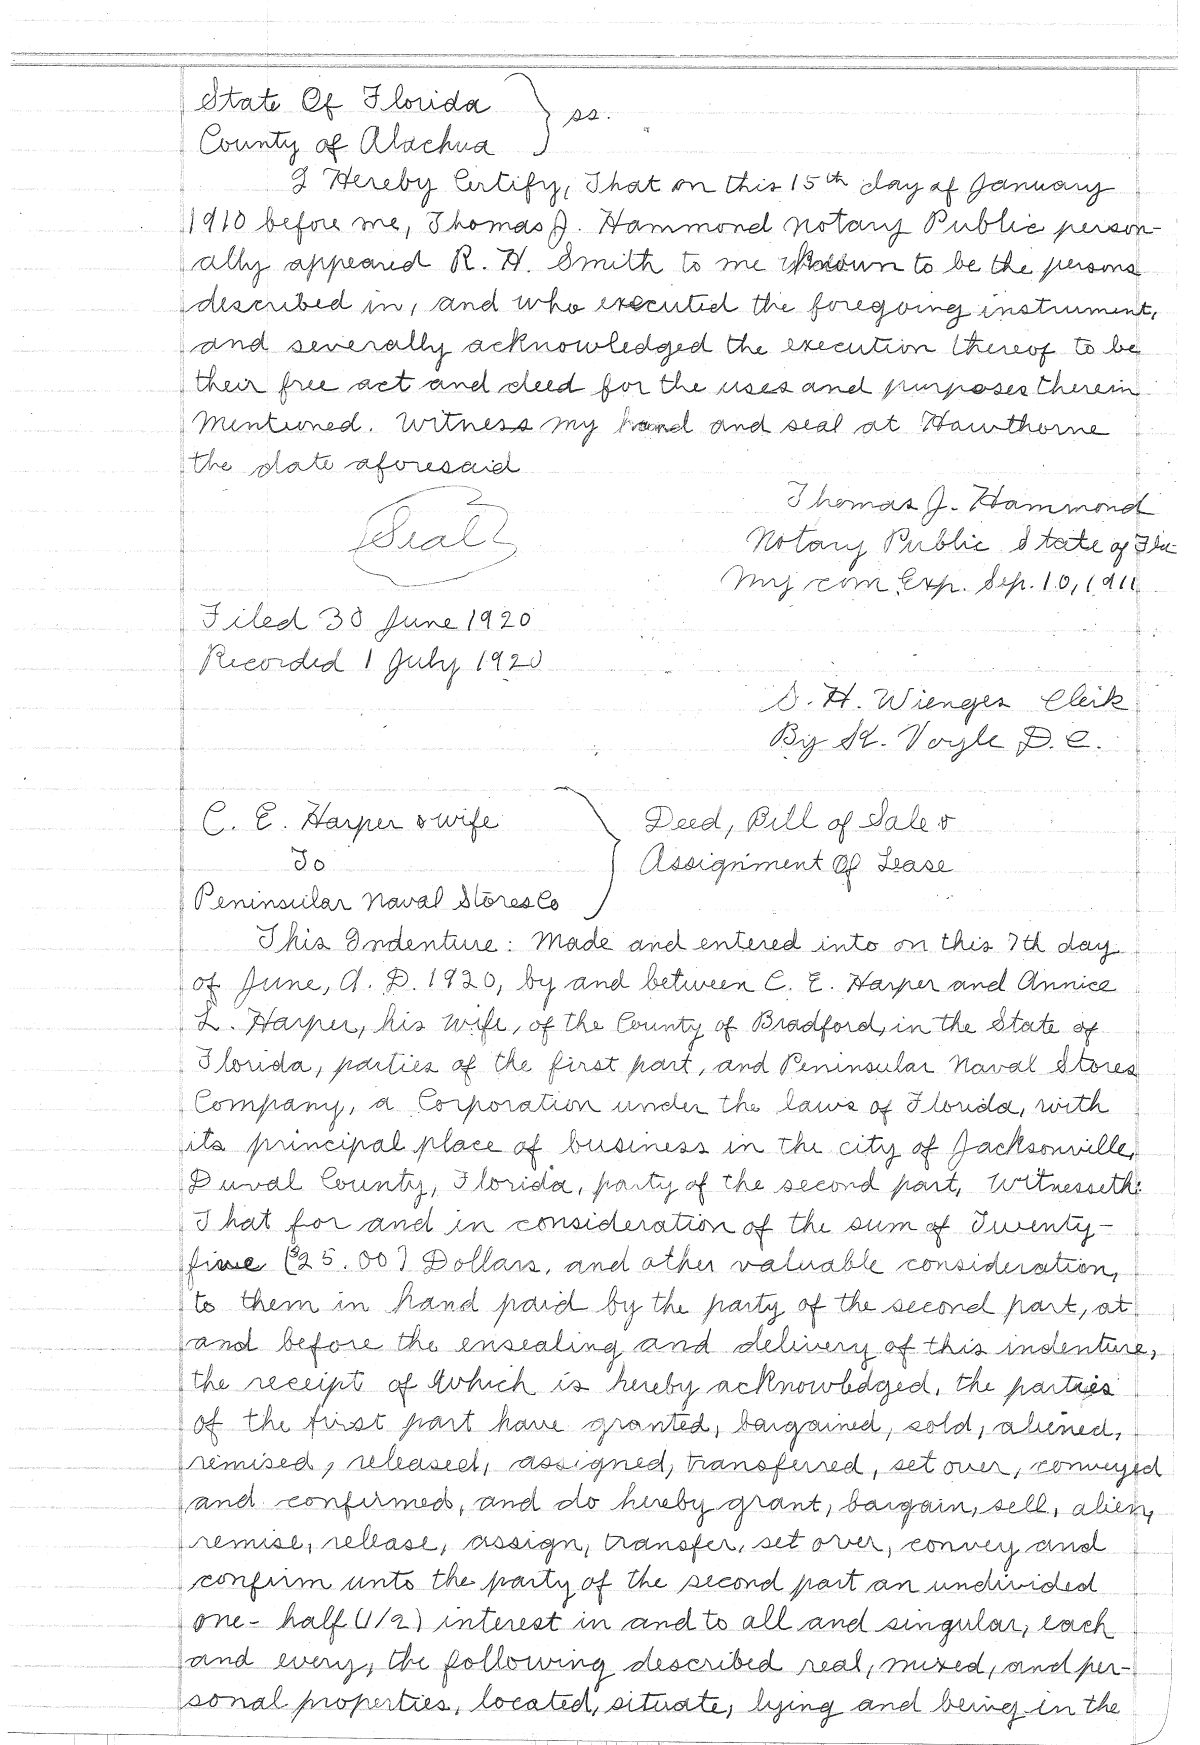 State Of Florida } ss.
County of Alachua
I Hereby Certify, That on this 15th day of January
1910 before me, Thomas J. Hammond Notary Public person-
ally appeared R. H. Smith to me known to be the persons
described in, and who executed the foregoing instrument,
and severally acknowledged the execution thereof to be
their free act and deed for the uses and purposes therein
mentioned. Witness my hand and seal at Hawthorne
the date aforesaid
Thomas J. Hammond
Seal
Notary Public State of Fla
My com Exp. Sep. 10, 1911
Filed 30 June 1920
Recorded 1 July 1920
S. H. Wienges Clerk
By St. Voyle D. C.
C. E. Harper & wife
To
Peninsular Naval Stores Co
Deed, Bill of Sale &
Assignment Of Lease
This Indenture: Made and entered into on this 7th day
of June, A. D. 1920, by and between C. E. Harper and Annice
L. Harper, his wife, of the County of Bradford, in the State of
Florida, parties of the first part, and Peninsular Naval Stores
Company, a Corporation under the laws of Florida, with
its principal place of business in the city of Jacksonville,
Duval County, Florida, party of the second part, Witnesseth:
That for and in consideration of the sum of Twenty-
five ($25.00) Dollars, and other valuable consideration,
to them in hand paid by the party of the second part, at
and before the ensealing and delivery of this indenture,
the receipt of which is hereby acknowledged, the parties
of the first part have granted, bargained, sold, aliened,
remised, released, assigned, transferred, set over, conveyed
and confirmed, and do hereby grant, bargain, sell, alien,
remise, release, assign, transfer, set over, convey and
confirm unto the party of the second part an undivided
one-half (1/2) interest in and to all and singular, each
and every, the following described real, mixed, and per-
sonal properties, located, situate, lying and being in the